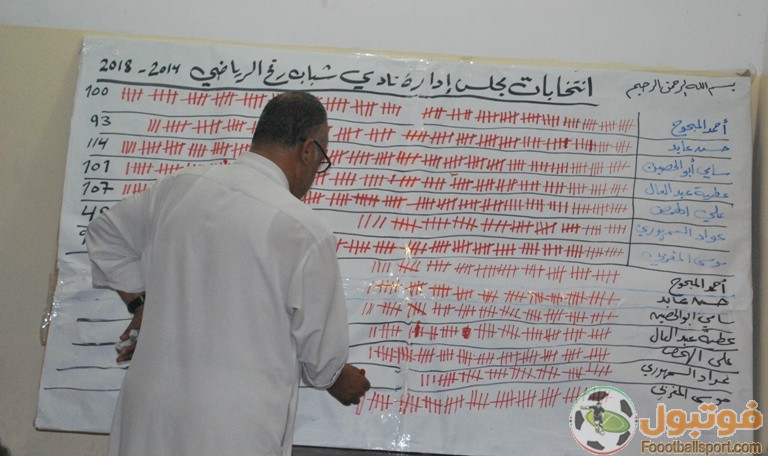 بسم الله الرحمن الرحيم
انتخابات مجلس إدارة نادي شباب رفح الرياضي 2014 - 2018
أحمد المبحوح 100
حسن عابد 93
سامي أبو الحصين 114
عطية عبد العال 101
علي 107
عواد السمهوري
موسى المغربي
أحمد المبحوح
حسن عابد
سامي ابو الحصين
عطية عبد العال
علي
عواد السمهوري
موسى المغربي
فوتبول
Foootballsport.com